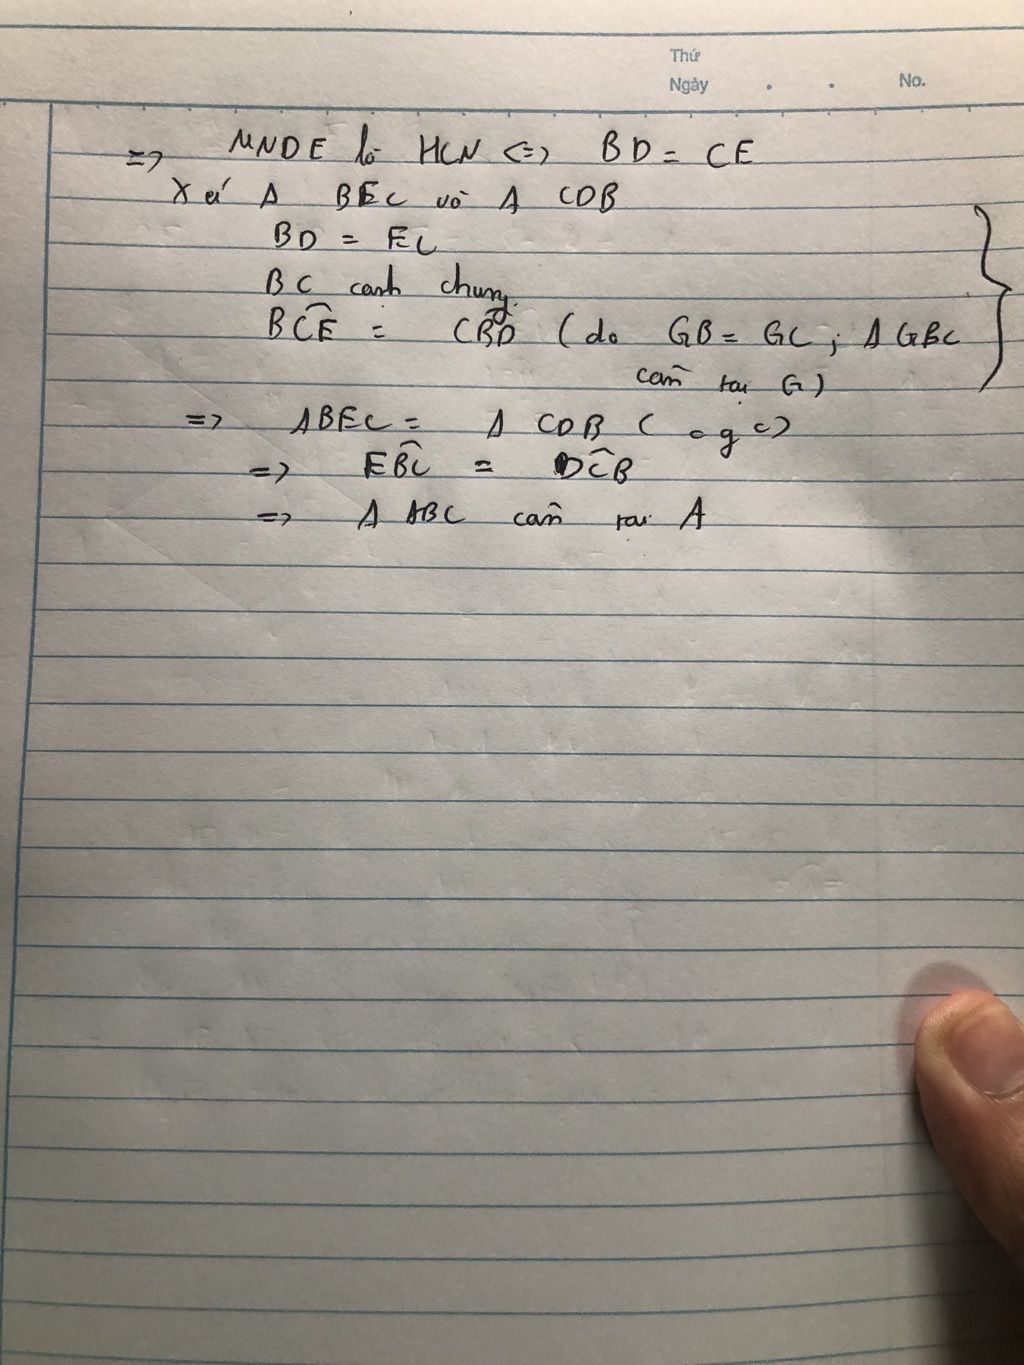 Thứ
Ngày . . No.
=> MNDE là HCN <=> BD = CE
Xét Δ BEC và Δ CDB
BD = EC
BC cạnh chung.
BĈE = CB̂D (do GB = GC ; Δ GBC
cân tại G)
=> ΔBEC = Δ CDB (c g c)
=> EB̂C = DĈB
=> Δ ABC cân tại A